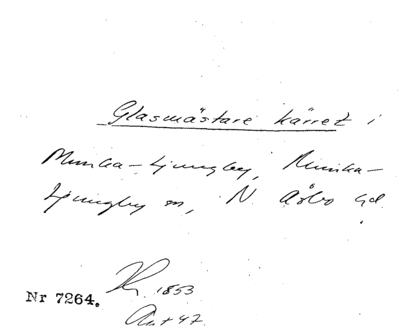 Glasmästare kärret i
Munka-Ljungby, Munka-
Ljungby sn, N Åsbo hd.
1853
Nr 7264.